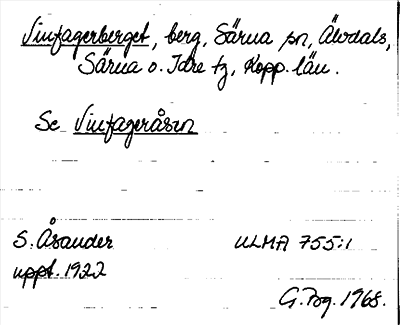 Vinfagerberget, berg, Särna sn, Älvdals,
Särna o. Idre tg, Kopp. län.
Se Vinfageråsen
S. Åsander
uppt. 1922
ULMA 755:1
G. Bg. 1968.